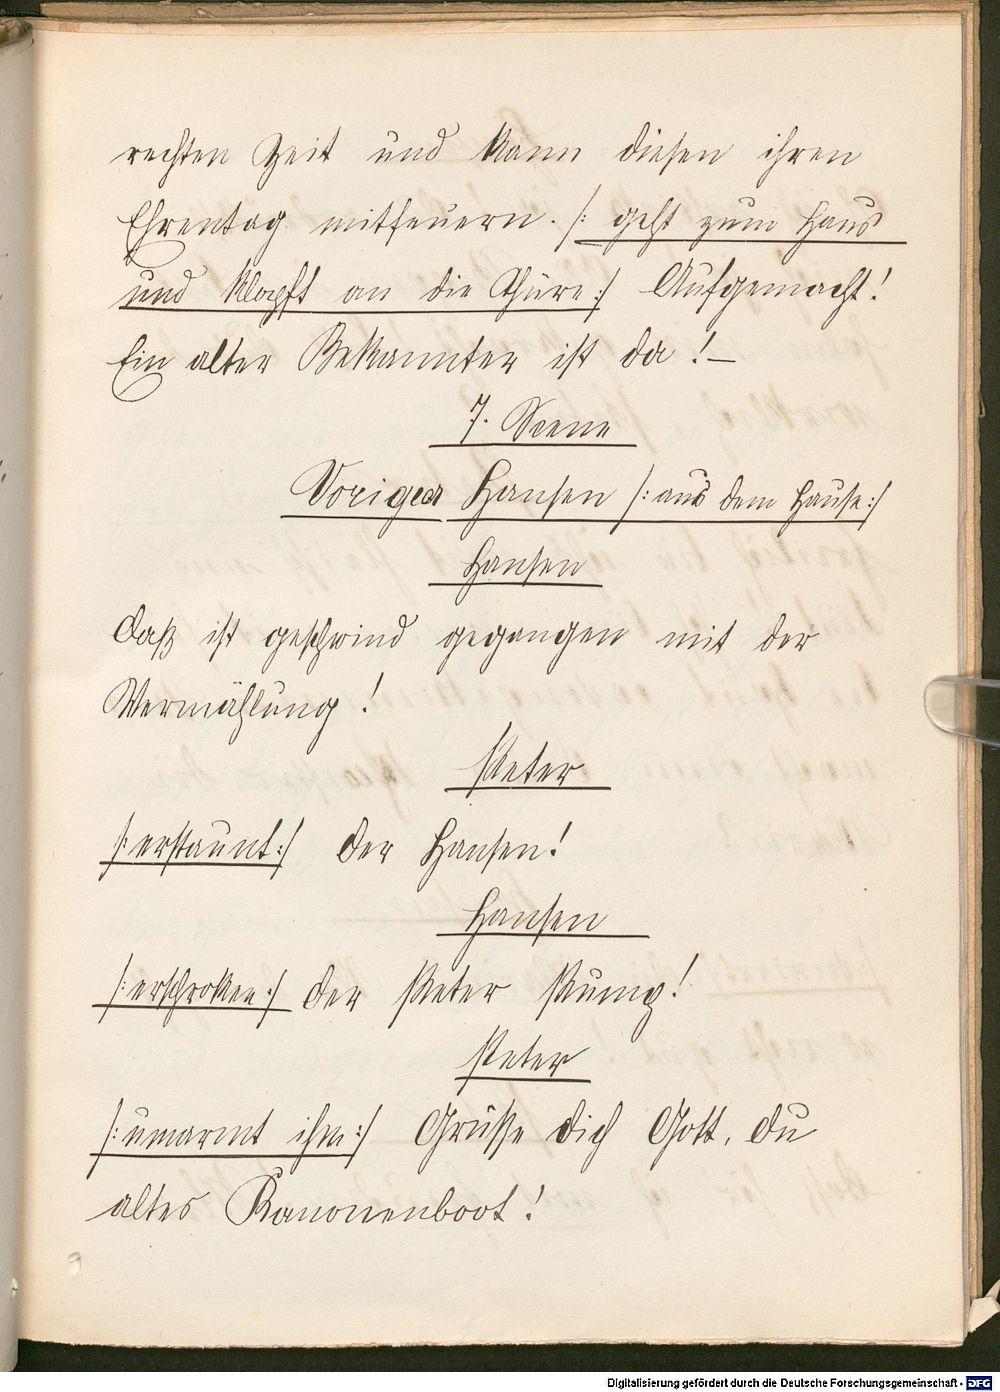 rechten Zeit und kann diesen ihren
Ehrentag mitfeuern. /: geht zum Haus
und klopft an die Thüre :/ Aufgemacht!
Ein alter Bekannter ist da! –
7. Scene
Voriger Hansen /: aus dem Hause :/
Hansen
Daß ist geschwind gegangen mit der
Vermählung!
Peter
/: erstaunt :/ Der Hansen!
Hansen
/: erschroken :/ Der Peter Pump!
Peter
/: umarmt ihm :/ Grüsse dich Gott, du
altes Kanonenboot!
Digitalisierung gefördert durch die Deutsche Forschungsgemeinschaft - DFG